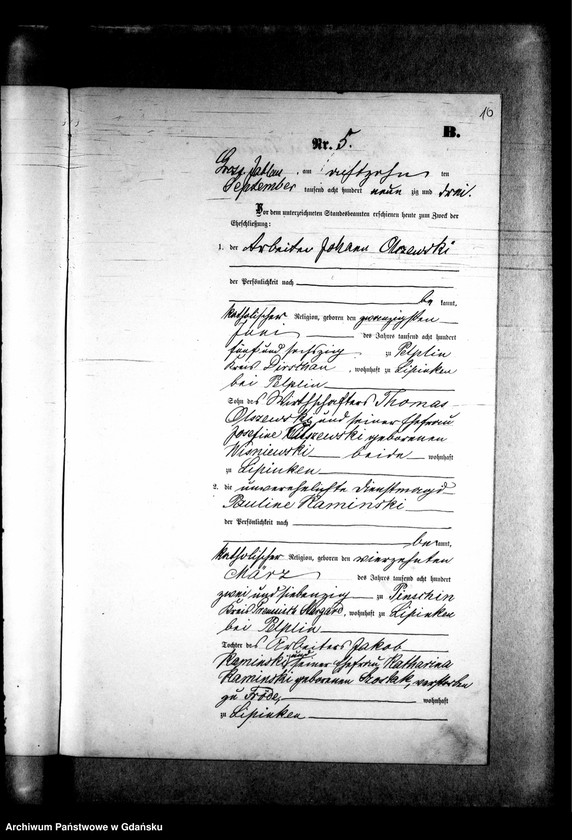 10
B.
Nr. 5.
Gross Jablau, am achtzehn ten
September tausend acht hundert neun zig und drei.
Vor dem unterzeichneten Standesbeamten erschienen heute zum Zweck der
Eheschließung:
1. der Arbeiter Johann Olszewski
der Persönlichkeit nach
be kannt,
katholischer Religion, geboren den zwanzigsten
Juni des Jahres tausend acht hundert
fünf und sechszig zu Pelplin
Kreis Dirschau, wohnhaft zu Lipinken
bei Pelplin
Sohn des Wirthschafters Thomas
Olszewski und seiner Ehefrau
Josefine Olszewski geborenen
Wisniewski beide wohnhaft
zu Lipinken
2. die unverehelichte Dienstmagd
Pauline Kaminski
der Persönlichkeit nach
be kannt,
katholischer Religion, geboren den vierzehnten
März des Jahres tausend acht hundert
zwei und siebenzig zu Pinschin
Kreis Preussisch Stargard, wohnhaft zu Lipinken
bei Pelplin
Tochter des Arbeiters Jakob
Kaminski und seiner Ehefrau Katharina
Kaminski geborenen verstorben
zu wohnhaft
zu Lipinken
Archiwum Państwowe w Gdańsku